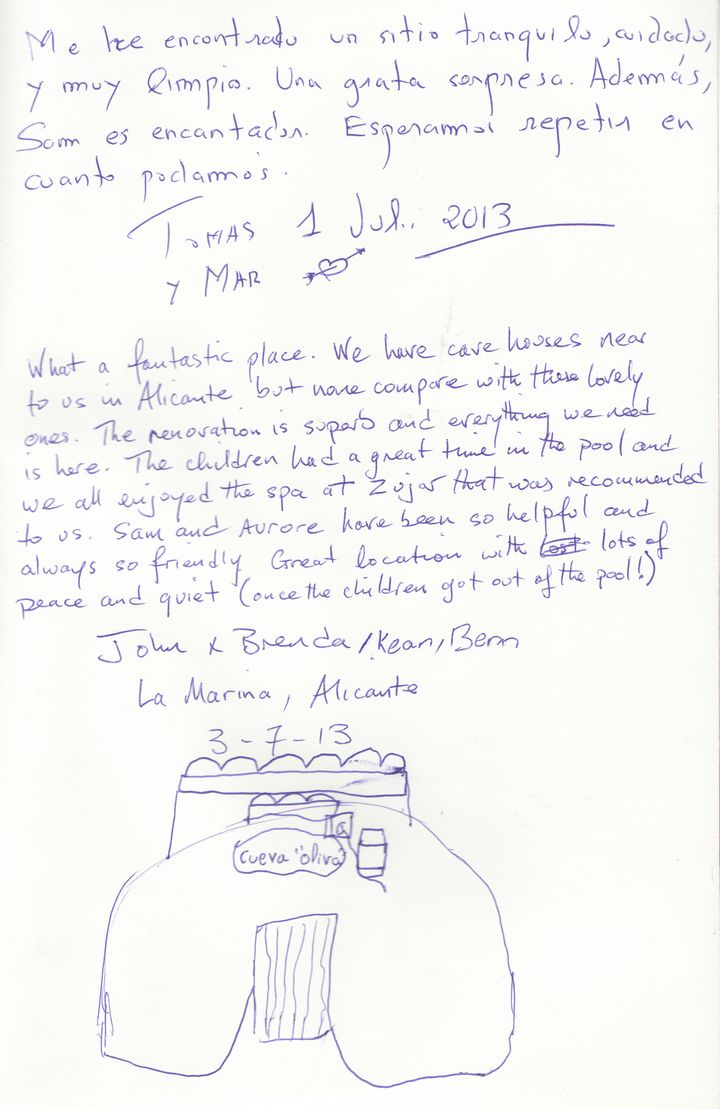 Me he encontrado un sitio tranquilo, cuidado,
y muy limpio. Una grata sorpresa. Además,
Sam es encantador. Esperamos repetir en
cuanto podamos.
TOMAS 1 Jul. 2013
y MAR
What a fantastic place. We have cave houses near
to us in Alicante but none compare with these lovely
ones. The renovation is superb and everything we need
is here. The children had a great time in the pool and
we all enjoyed the spa at Zujar that was recommended
to us. Sam and Aurore have been so helpful and
always so friendly Great location with lots of
peace and quiet (once the children got out of the pool!)
John x Brenda/Kean/Benn
La Marina, Alicante
3-7-13
a
cueva "oliva"